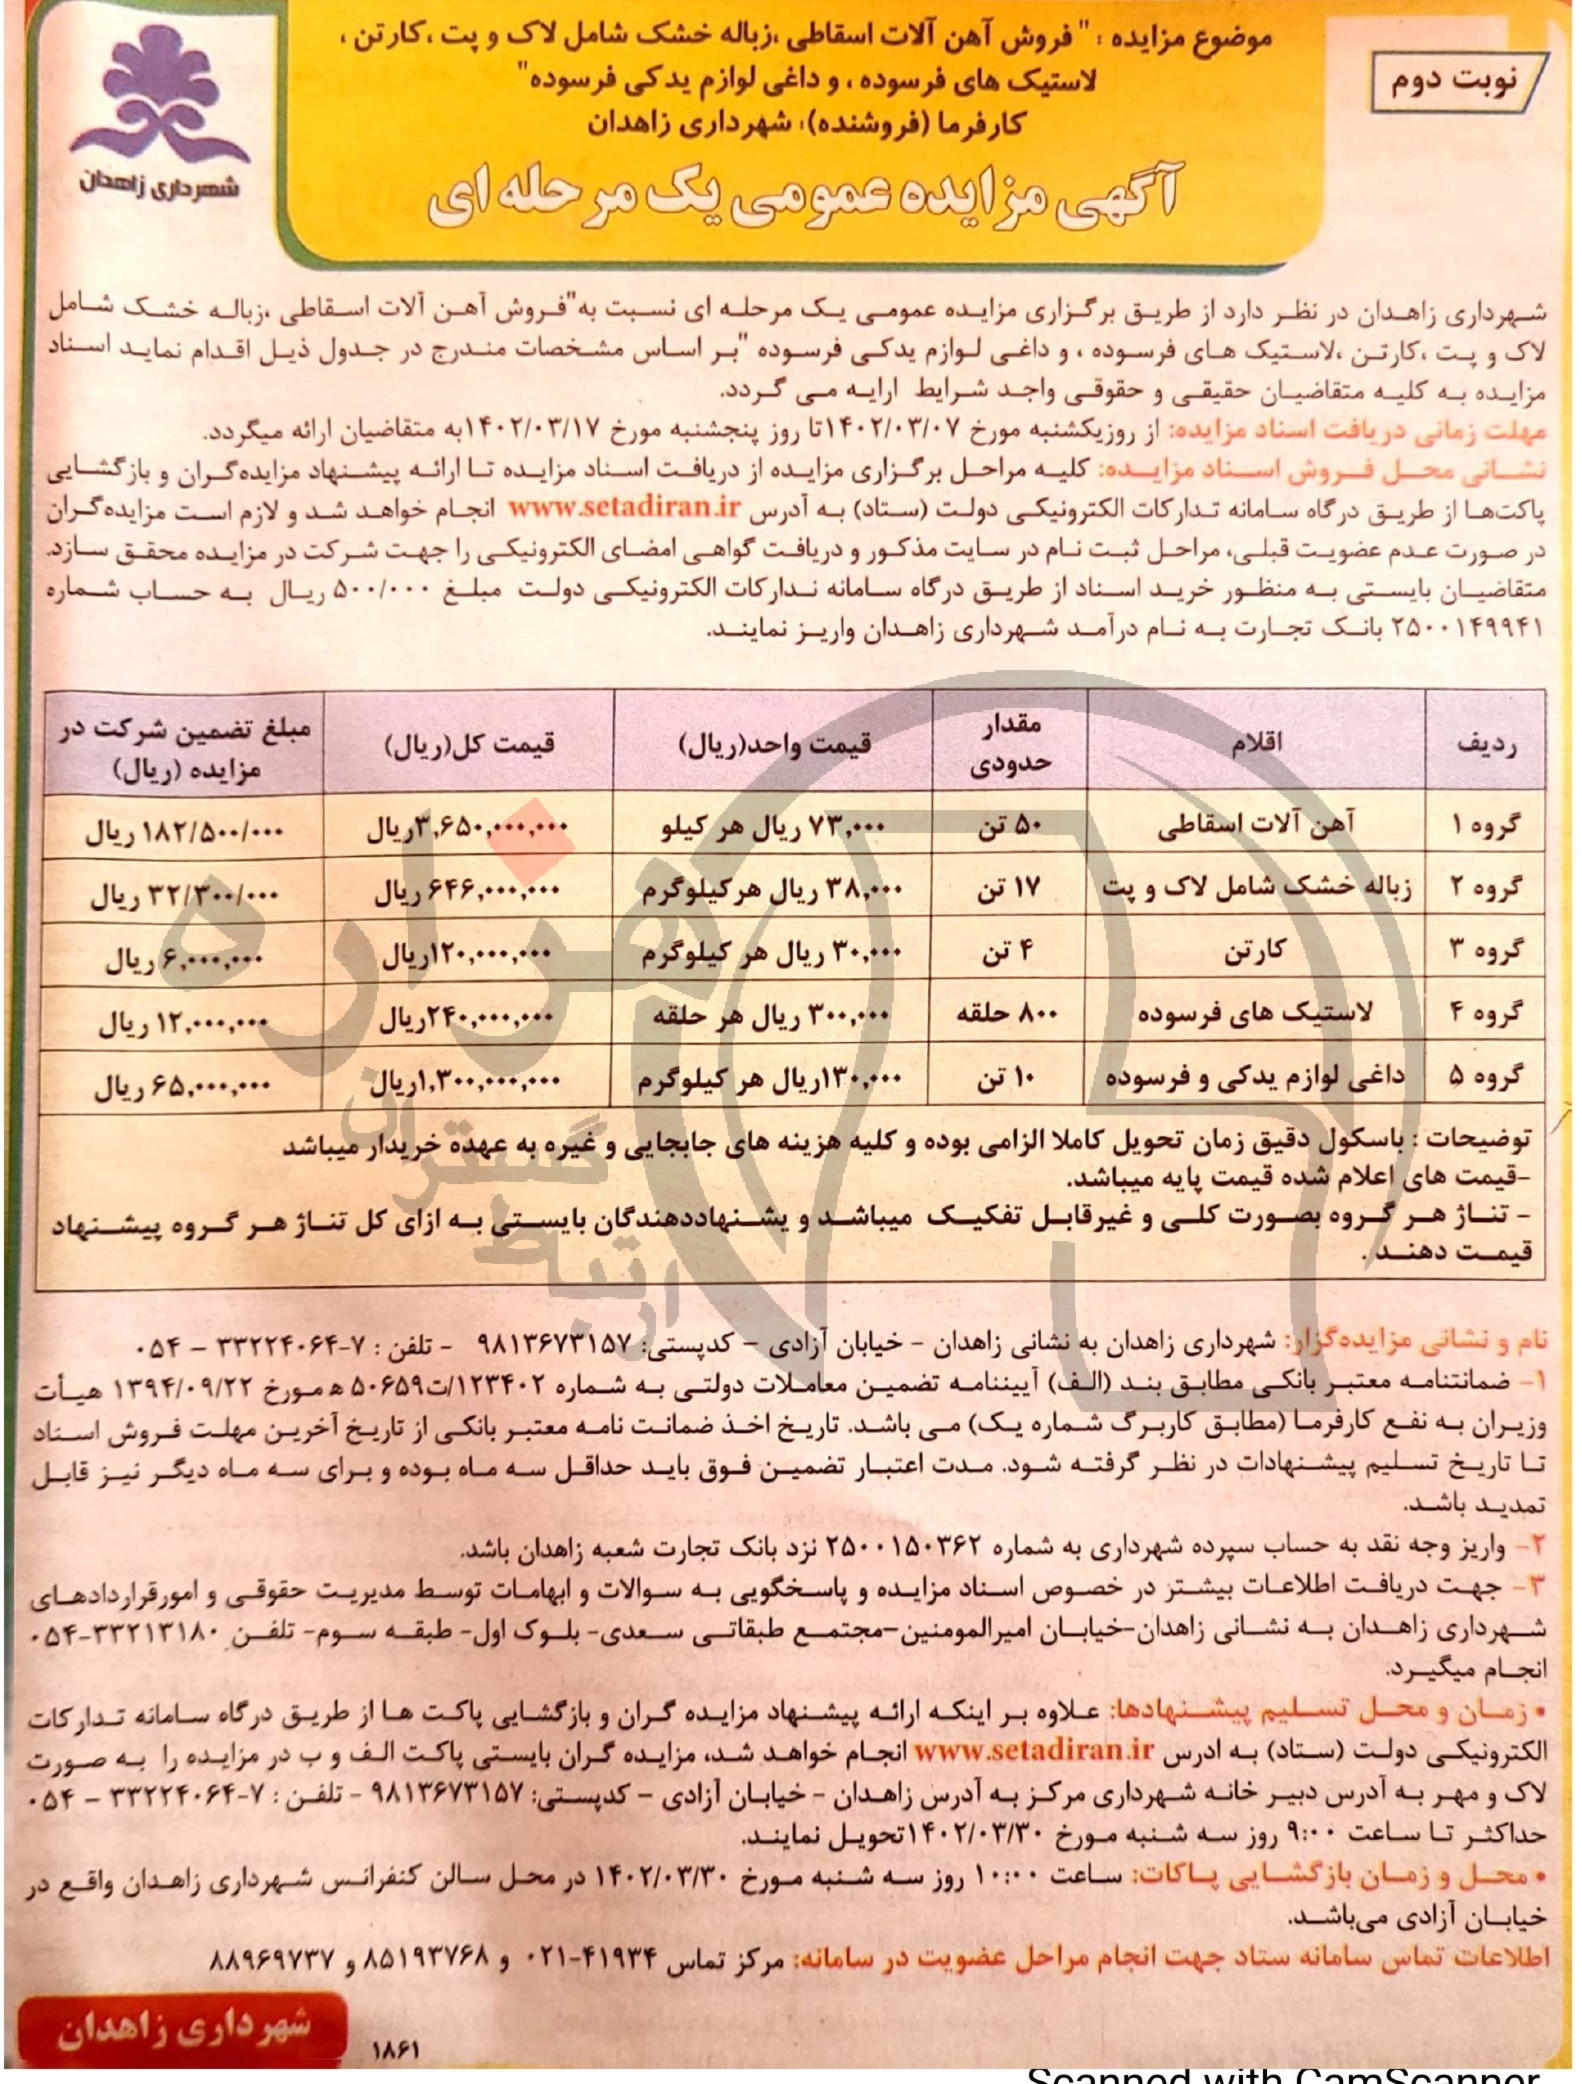 نوبت دوم
موضوع مزایده : " فروش آهن آلات اسقاطی ،زباله خشک شامل لاک و پت ،کارتن ،
لاستیک های فرسوده ، و داغی لوازم یدکی فرسوده"
کارفرما (فروشنده): شهرداری زاهدان
آگهی مزایده عمومی یک مرحله ای
شهرداری زاهدان
شهرداری زاهدان در نظر دارد از طریق برگزاری مزایده عمومی یک مرحله ای نسبت به"فروش آهن آلات اسقاطی ،زباله خشک شامل
لاک و پت ،کارتن ،لاستیک های فرسوده ، و داغی لوازم یدکی فرسوده "بر اساس مشخصات مندرج در جدول ذیل اقدام نماید اسناد
مزایده به کلیه متقاضیان حقیقی و حقوقی واجد شرایط ارایه می گردد.
مهلت زمانی دریافت اسناد مزایده: از روزیکشنبه مورخ ۱۴۰۲/۰۳/۰۷تا روز پنجشنبه مورخ ۱۴۰۲/۰۳/۱۷به متقاضیان ارائه میگردد.
نشانی محل فروش اسناد مزایده: کلیه مراحل برگزاری مزایده از دریافت اسناد مزایده تا ارائه پیشنهاد مزایده‌گران و بازگشایی
پاکت‌ها از طریق درگاه سامانه تدارکات الکترونیکی دولت (ستاد) به آدرس www.setadiran.ir انجام خواهد شد و لازم است مزایده‌گران
در صورت عدم عضویت قبلی، مراحل ثبت نام در سایت مذکور و دریافت گواهی امضای الکترونیکی را جهت شرکت در مزایده محقق سازد.
متقاضیان بایستی به منظور خرید اسناد از طریق درگاه سامانه تدارکات الکترونیکی دولت مبلغ ۵۰۰/۰۰۰ ریال به حساب شماره
۲۵۰۰۱۴۹۹۴۱ بانک تجارت به نام درآمد شهرداری زاهدان واریز نمایند.
ردیف اقلام مقدار حدودی قیمت واحد(ریال) قیمت کل(ریال) مبلغ تضمین شرکت در مزایده (ریال)
گروه ۱ آهن آلات اسقاطی ۵۰ تن ۷۳,۰۰۰ ریال هر کیلو ۳,۶۵۰,۰۰۰,۰۰۰ریال ۱۸۲/۵۰۰/۰۰۰ ریال
گروه ۲ زباله خشک شامل لاک و پت ۱۷ تن ۳۸,۰۰۰ ریال هرکیلوگرم ۶۴۶,۰۰۰,۰۰۰ ریال ۳۲/۳۰۰/۰۰۰ ریال
گروه ۳ کارتن ۴ تن ۳۰,۰۰۰ ریال هر کیلوگرم ۱۲۰,۰۰۰,۰۰۰ریال ۶,۰۰۰,۰۰۰ ریال
گروه ۴ لاستیک های فرسوده ۸۰۰ حلقه ۳۰۰,۰۰۰ ریال هر حلقه ۲۴۰,۰۰۰,۰۰۰ریال ۱۲,۰۰۰,۰۰۰ ریال
گروه ۵ داغی لوازم یدکی و فرسوده ۱۰ تن ۱۳۰,۰۰۰ریال هر کیلوگرم ۱,۳۰۰,۰۰۰,۰۰۰ریال ۶۵,۰۰۰,۰۰۰ ریال
توضیحات : باسکول دقیق زمان تحویل کاملا الزامی بوده و کلیه هزینه های جابجایی و غیره به عهده خریدار میباشد
-قیمت های اعلام شده قیمت پایه میباشد.
- تناژ هر گروه بصورت کلی و غیرقابل تفکیک میباشد و پشنهاددهندگان بایستی به ازای کل تناژ هر گروه پیشنهاد
قیمت دهند .
نام و نشانی مزایده‌گزار: شهرداری زاهدان به نشانی زاهدان - خیابان آزادی - کدپستی: ۹۸۱۳۶۷۳۱۵۷ - تلفن : ۷-۳۳۲۲۴۰۶۴ - ۰۵۴
۱- ضمانتنامه معتبر بانکی مطابق بند (الف) آییننامه تضمین معاملات دولتی به شماره ۱۲۳۴۰۲/ت۵۰۶۵۹ ه مورخ ۱۳۹۴/۰۹/۲۲ هیأت
وزیران به نفع کارفرما (مطابق کاربرگ شماره یک) می باشد. تاریخ اخذ ضمانت نامه معتبر بانکی از تاریخ آخرین مهلت فروش اسناد
تا تاریخ تسلیم پیشنهادات در نظر گرفته شود. مدت اعتبار تضمین فوق باید حداقل سه ماه بوده و برای سه ماه دیگر نیز قابل
تمدید باشد.
۲- واریز وجه نقد به حساب سپرده شهرداری به شماره ۲۵۰۰۱۵۰۳۶۲ نزد بانک تجارت شعبه زاهدان باشد.
۳- جهت دریافت اطلاعات بیشتر در خصوص اسناد مزایده و پاسخگویی به سوالات و ابهامات توسط مدیریت حقوقی و امورقراردادهای
شهرداری زاهدان به نشانی زاهدان-خیابان امیرالمومنین-مجتمع طبقاتی سعدی- بلوک اول- طبقه سوم- تلفن ۳۳۲۱۳۱۸۰-۰۵۴
انجام میگیرد.
• زمان و محل تسلیم پیشنهادها: علاوه بر اینکه ارائه پیشنهاد مزایده گران و بازگشایی پاکت ها از طریق درگاه سامانه تدارکات
الکترونیکی دولت (ستاد) به ادرس www.setadiran.ir انجام خواهد شد، مزایده گران بایستی پاکت الف و ب در مزایده را به صورت
لاک و مهر به آدرس دبیر خانه شهرداری مرکز به آدرس زاهدان - خیابان آزادی - کدپستی: ۹۸۱۳۶۷۳۱۵۷ - تلفن : ۷-۳۳۲۲۴۰۶۴ - ۰۵۴
حداکثر تا ساعت ۹:۰۰ روز سه شنبه مورخ ۱۴۰۲/۰۳/۳۰تحویل نمایند.
• محل و زمان بازگشایی پاکات: ساعت ۱۰:۰۰ روز سه شنبه مورخ ۱۴۰۲/۰۳/۳۰ در محل سالن کنفرانس شهرداری زاهدان واقع در
خیابان آزادی می‌باشد.
اطلاعات تماس سامانه ستاد جهت انجام مراحل عضویت در سامانه: مرکز تماس ۴۱۹۳۴-۰۲۱ و ۸۵۱۹۳۷۶۸ و ۸۸۹۶۹۷۳۷
شهرداری زاهدان
۱۸۶۱
هزاره
ارتباط گستران
Scanned with CamScanner